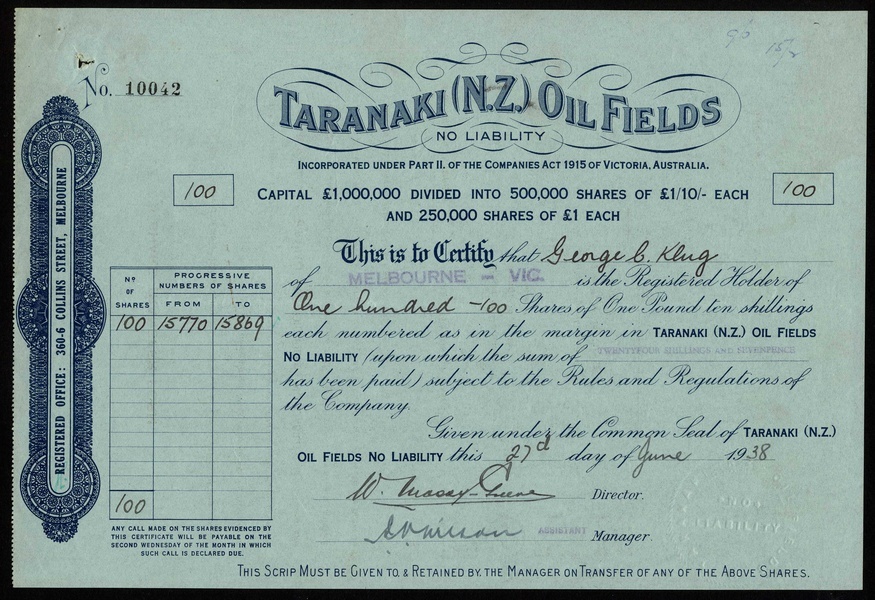 No. 10042
TARANAKI (N.Z.) OIL FIELDS
NO LIABILITY
INCORPORATED UNDER PART II. OF THE COMPANIES ACT 1915 OF VICTORIA, AUSTRALIA.
100
CAPITAL £1,000,000 DIVIDED INTO 500,000 SHARES OF £1/10/- EACH
100
AND 250,000 SHARES OF £1 EACH
This is to Certify that George C. Klug
of MELBOURNE - VIC. is the Registered Holder of
One hundred -100 Shares of One Pound ten shillings
each numbered as in the margin in TARANAKI (N.Z.) OIL FIELDS
NO LIABILITY (upon which the sum of TWENTYFOUR SHILLINGS AND SEVENPENCE
has been paid) subject to the Rules and Regulations of
the Company.
Given under the Common Seal of TARANAKI (N.Z.)
OIL FIELDS NO LIABILITY this 27th day of June 1938
W. Massy-Greene Director.
ASSISTANT Manager.
REGISTERED OFFICE: 360-6 COLLINS STREET, MELBOURNE
No OF SHARES
PROGRESSIVE NUMBERS OF SHARES
FROM TO
100 15770 15869
100
ANY CALL MADE ON THE SHARES EVIDENCED BY
THIS CERTIFICATE WILL BE PAYABLE ON THE
SECOND WEDNESDAY OF THE MONTH IN WHICH
SUCH CALL IS DECLARED DUE.
NO LIABILITY
THIS SCRIP MUST BE GIVEN TO, & RETAINED BY, THE MANAGER ON TRANSFER OF ANY OF THE ABOVE SHARES.